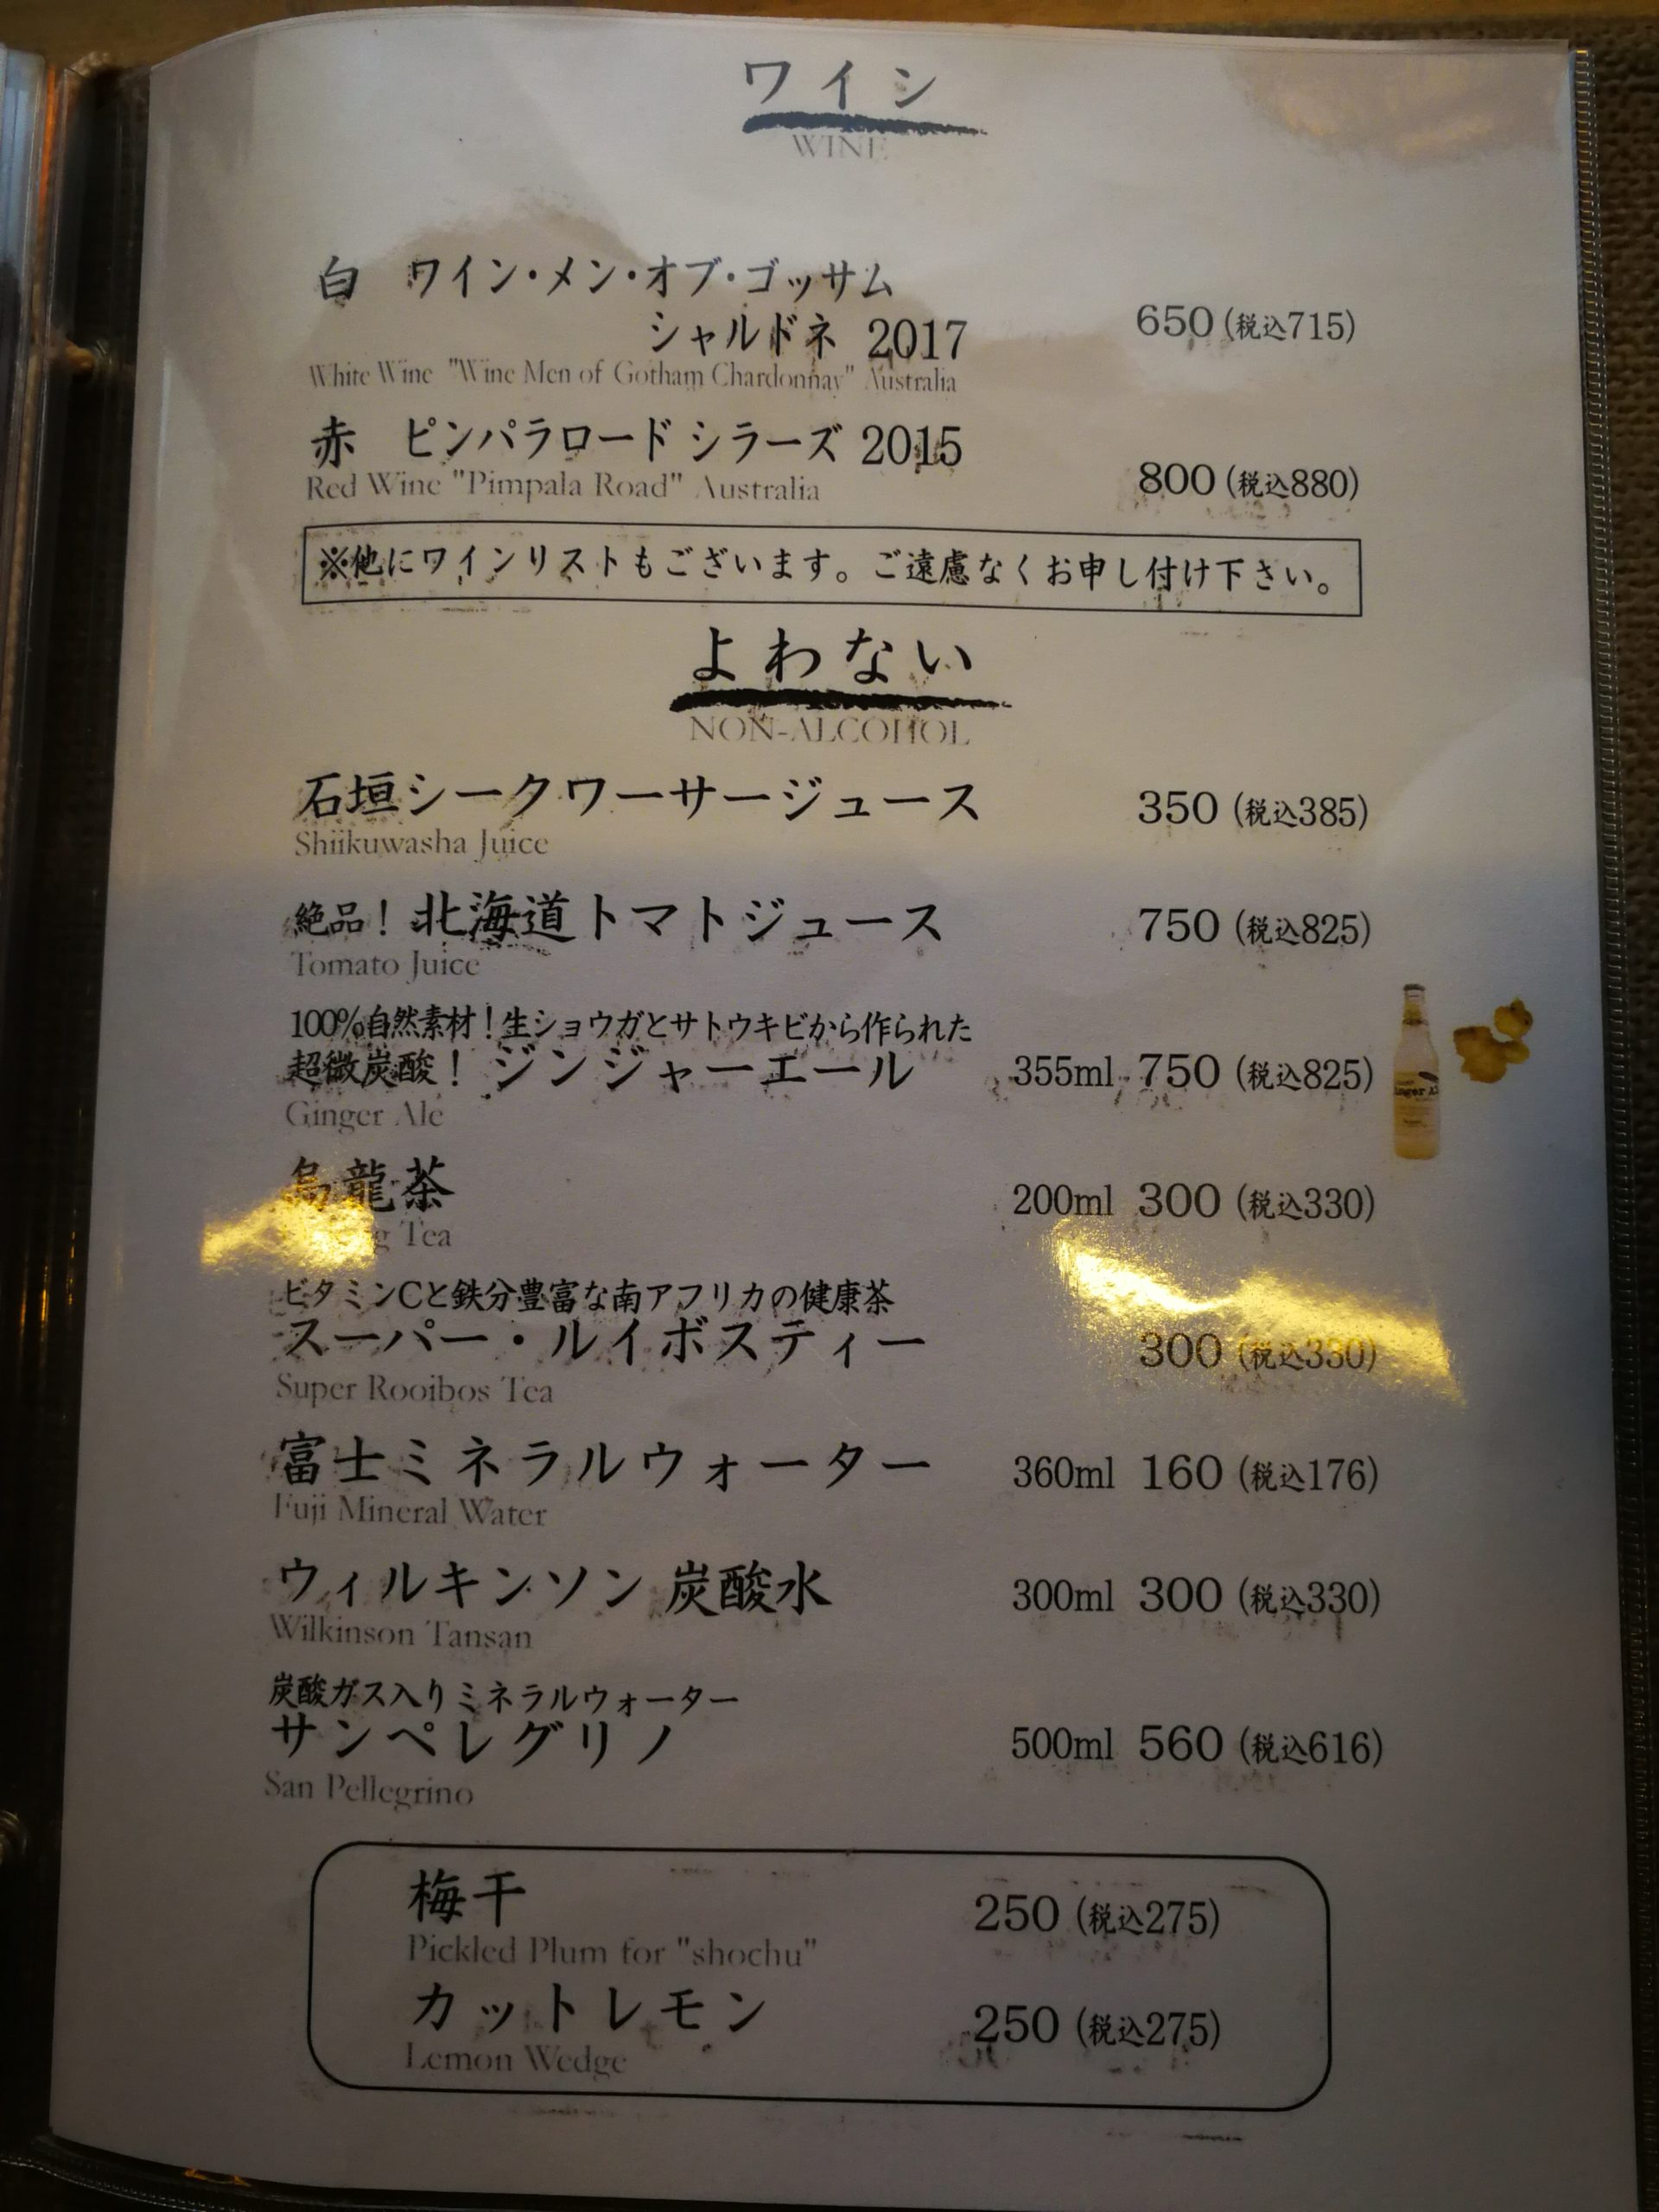 ワイン
WINE
白 ワイン・メン・オブ・ゴッサム
シャルドネ 2017
650 (税込715)
White Wine "Wine Men of Gotham Chardonnay" Australia
赤 ピンパラロード シラーズ 2015
Red Wine "Pimpala Road" Australia
800 (税込880)
※他にワインリストもございます。ご遠慮なくお申し付け下さい。
よわない
NON-ALCOHOL
石垣シークワーサージュース 350 (税込385)
Shiikuwasha Juice
絶品! 北海道トマトジュース 750 (税込825)
Tomato Juice
100%自然素材!生ショウガとサトウキビから作られた
超微炭酸! ジンジャーエール 355ml 750 (税込825)
Ginger Ale
烏龍茶 200ml 300 (税込330)
Tea
ビタミンCと鉄分豊富な南アフリカの健康茶
スーパー・ルイボスティー 300 (税込330)
Super Rooibos Tea
富士ミネラルウォーター 360ml 160 (税込176)
Fuji Mineral Water
ウィルキンソン 炭酸水 300ml 300 (税込330)
Wilkinson Tansan
炭酸ガス入りミネラルウォーター
サンペレグリノ 500ml 560 (税込616)
San Pellegrino
梅干 250 (税込275)
Pickled Plum for "shochu"
カットレモン 250 (税込275)
Lemon Wedge